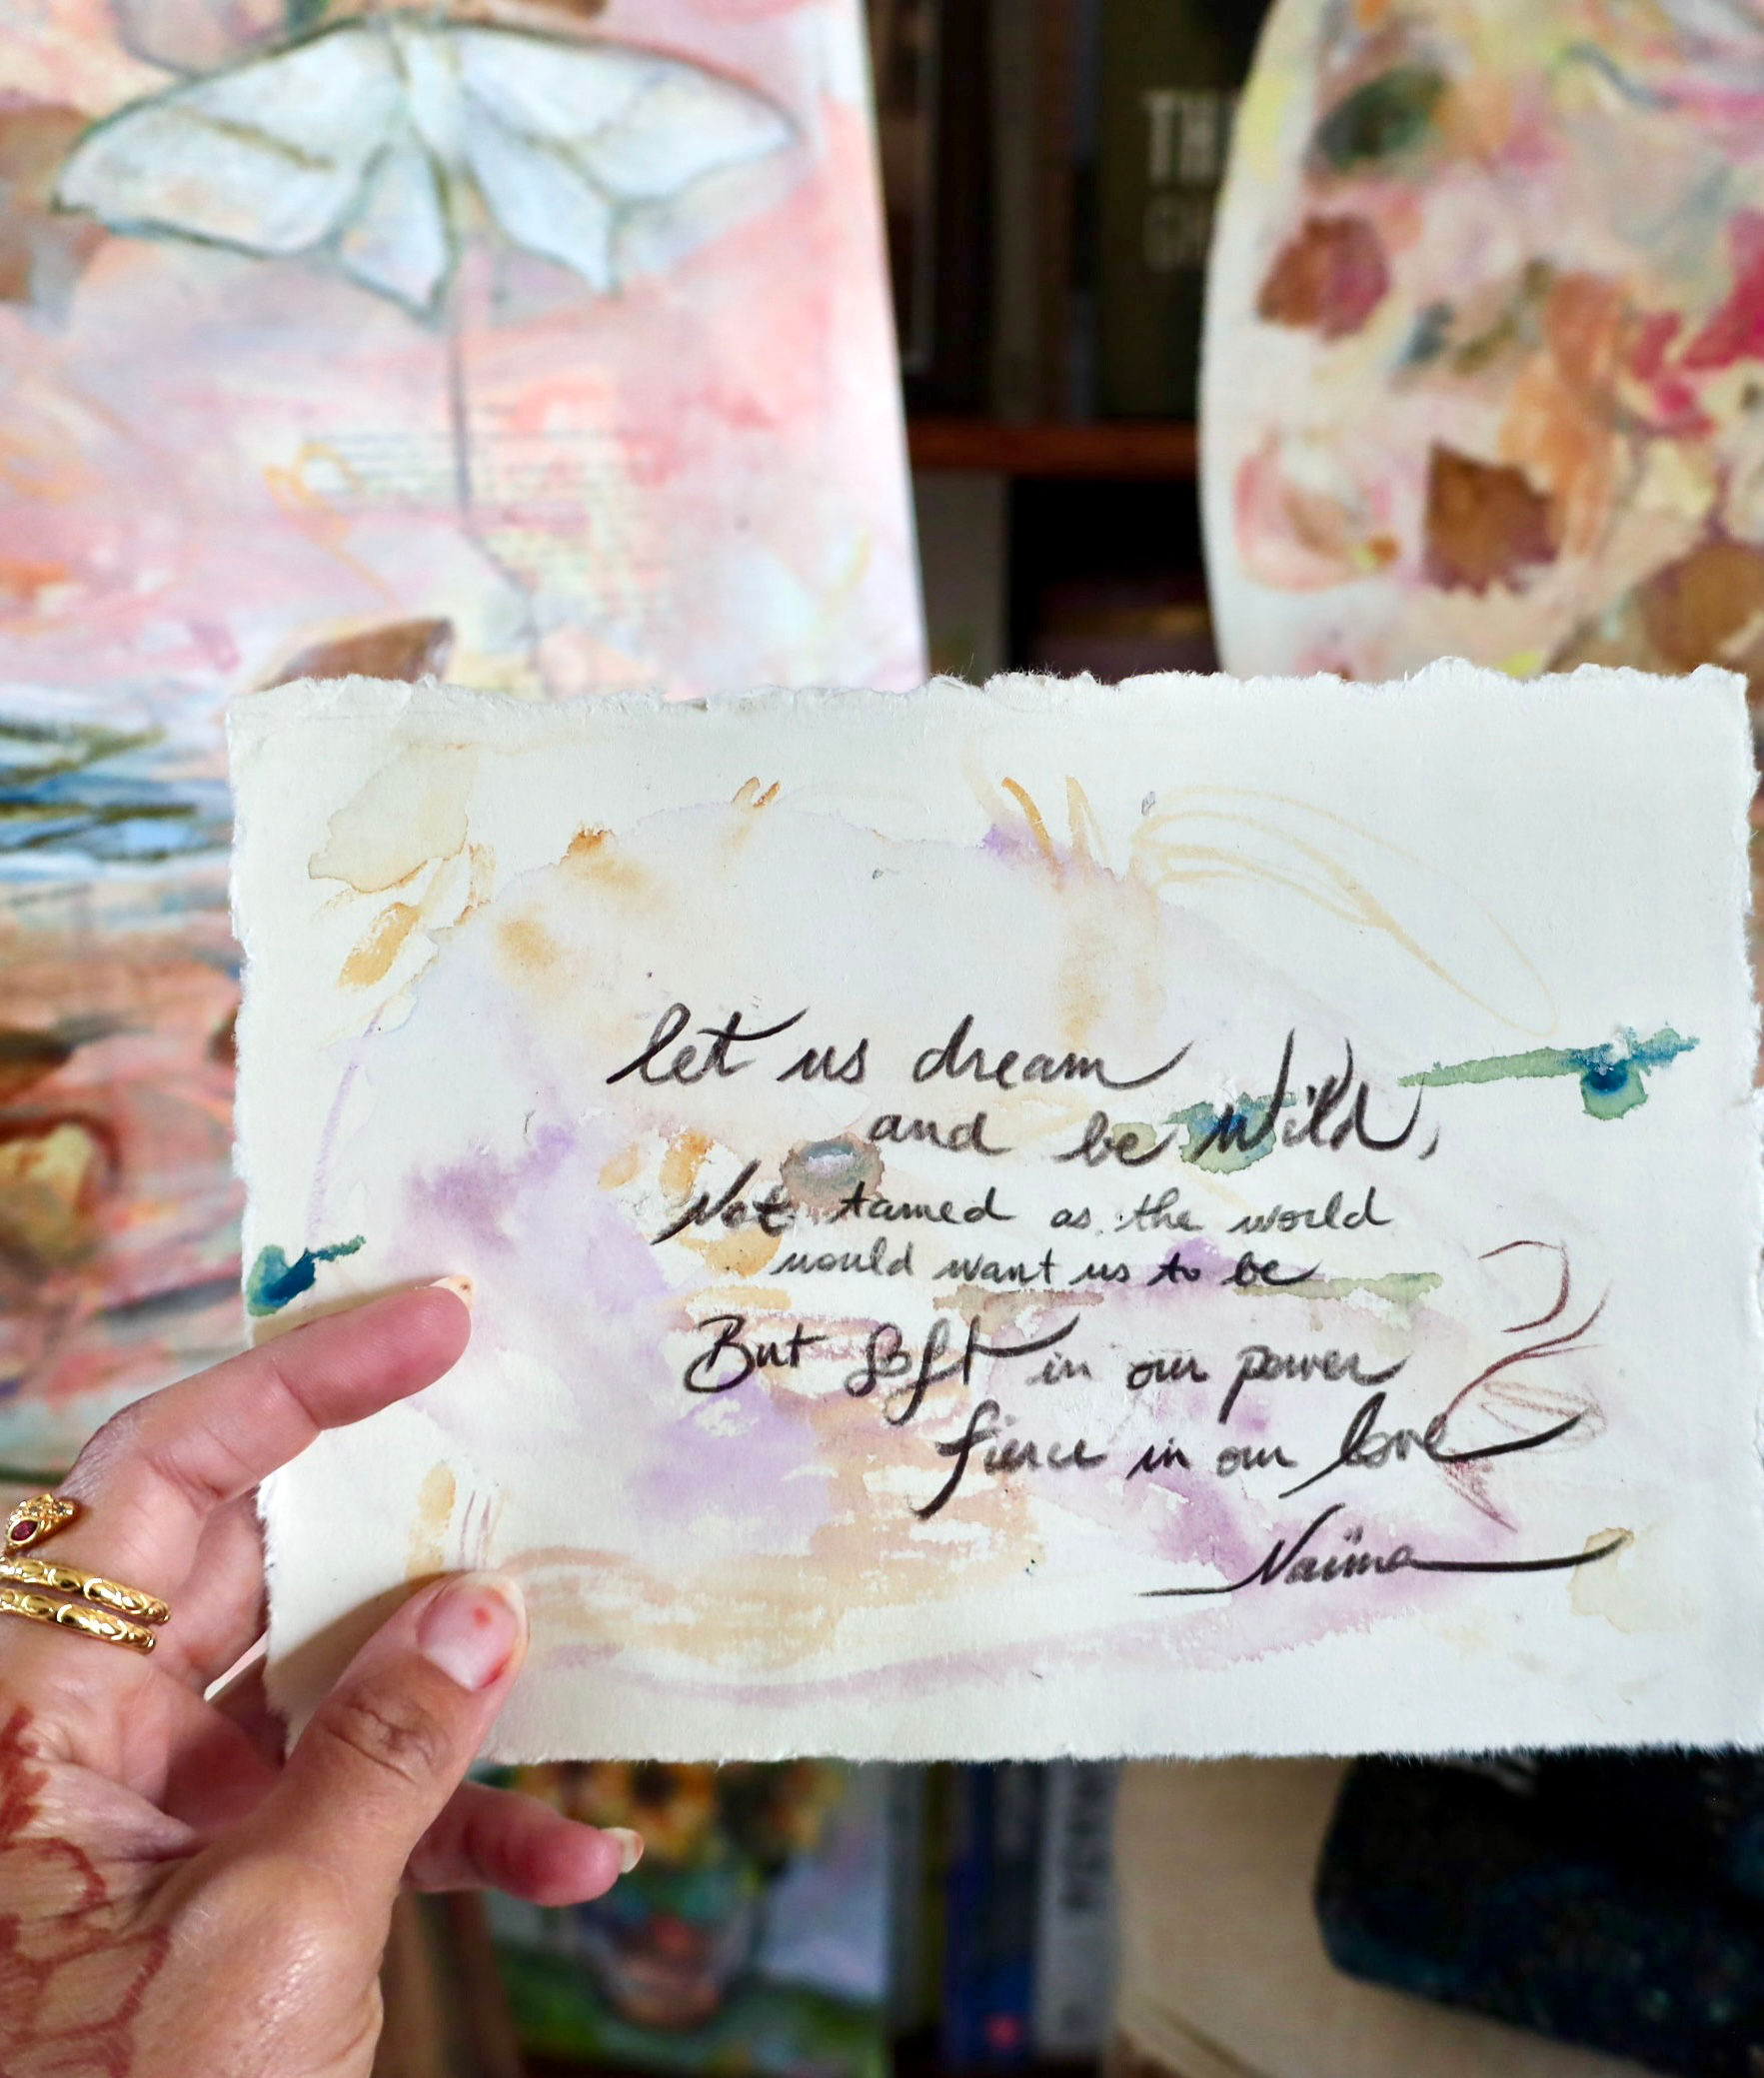 let us dream
and be Wild,
Not tamed as the world
would want us to be
But soft in our power
fierce in our love
Naïma